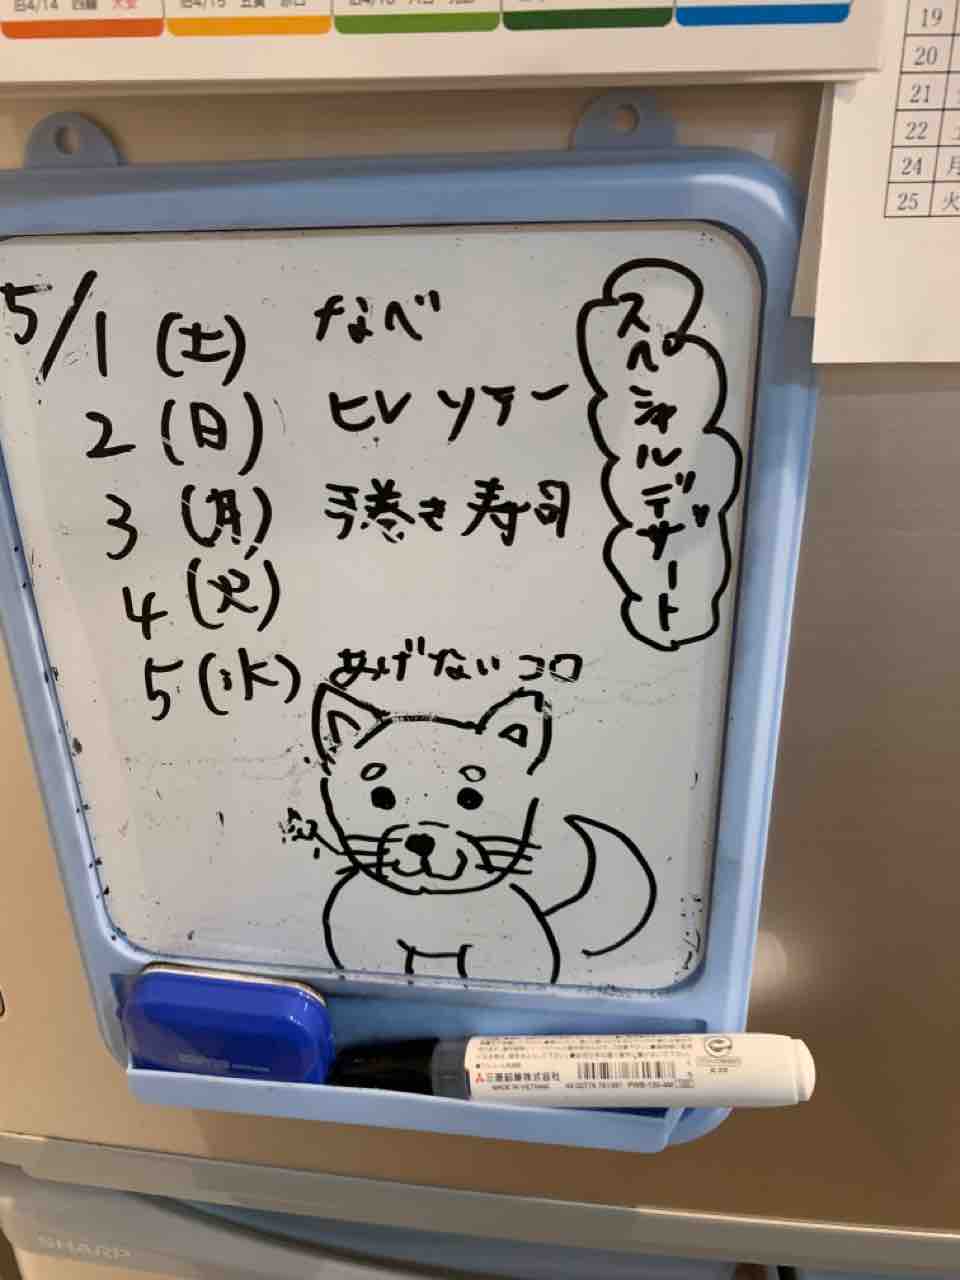 旧4/14 四緑 大安
19
20
21
22 土
24 月
25 火
5/1 (土) なべ
2 (日) ヒレソテー
3 (月) 手巻き寿司
4 (火)
5 (水)
スペシャルデザート
あげないコロ
三菱鉛筆株式会社
MADE IN VIETNAM
SHARP